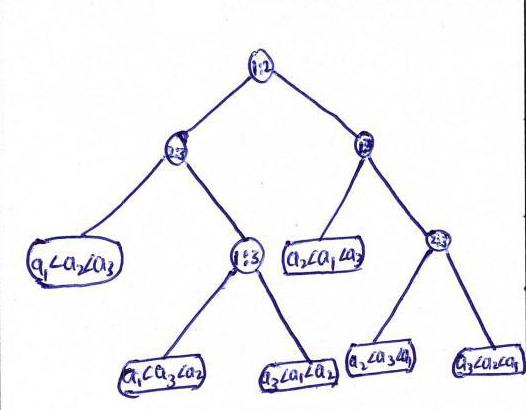 1:2
2:3
1:3
a₁<a₂<a₃
1:3
a₂<a₁<a₃
2:3
a₁<a₃<a₂
a₃<a₁<a₂
a₂<a₃<a₁
a₃<a₂<a₁